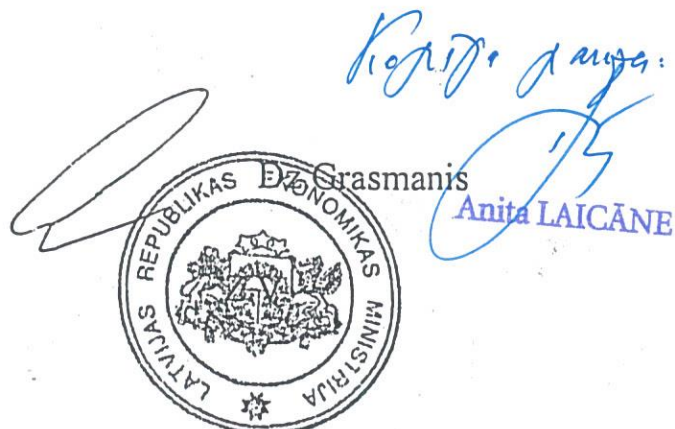 Dz. Grasmanis
Anita LAICĀNE
LATVIJAS REPUBLIKAS EKONOMIKAS MINISTRIJA